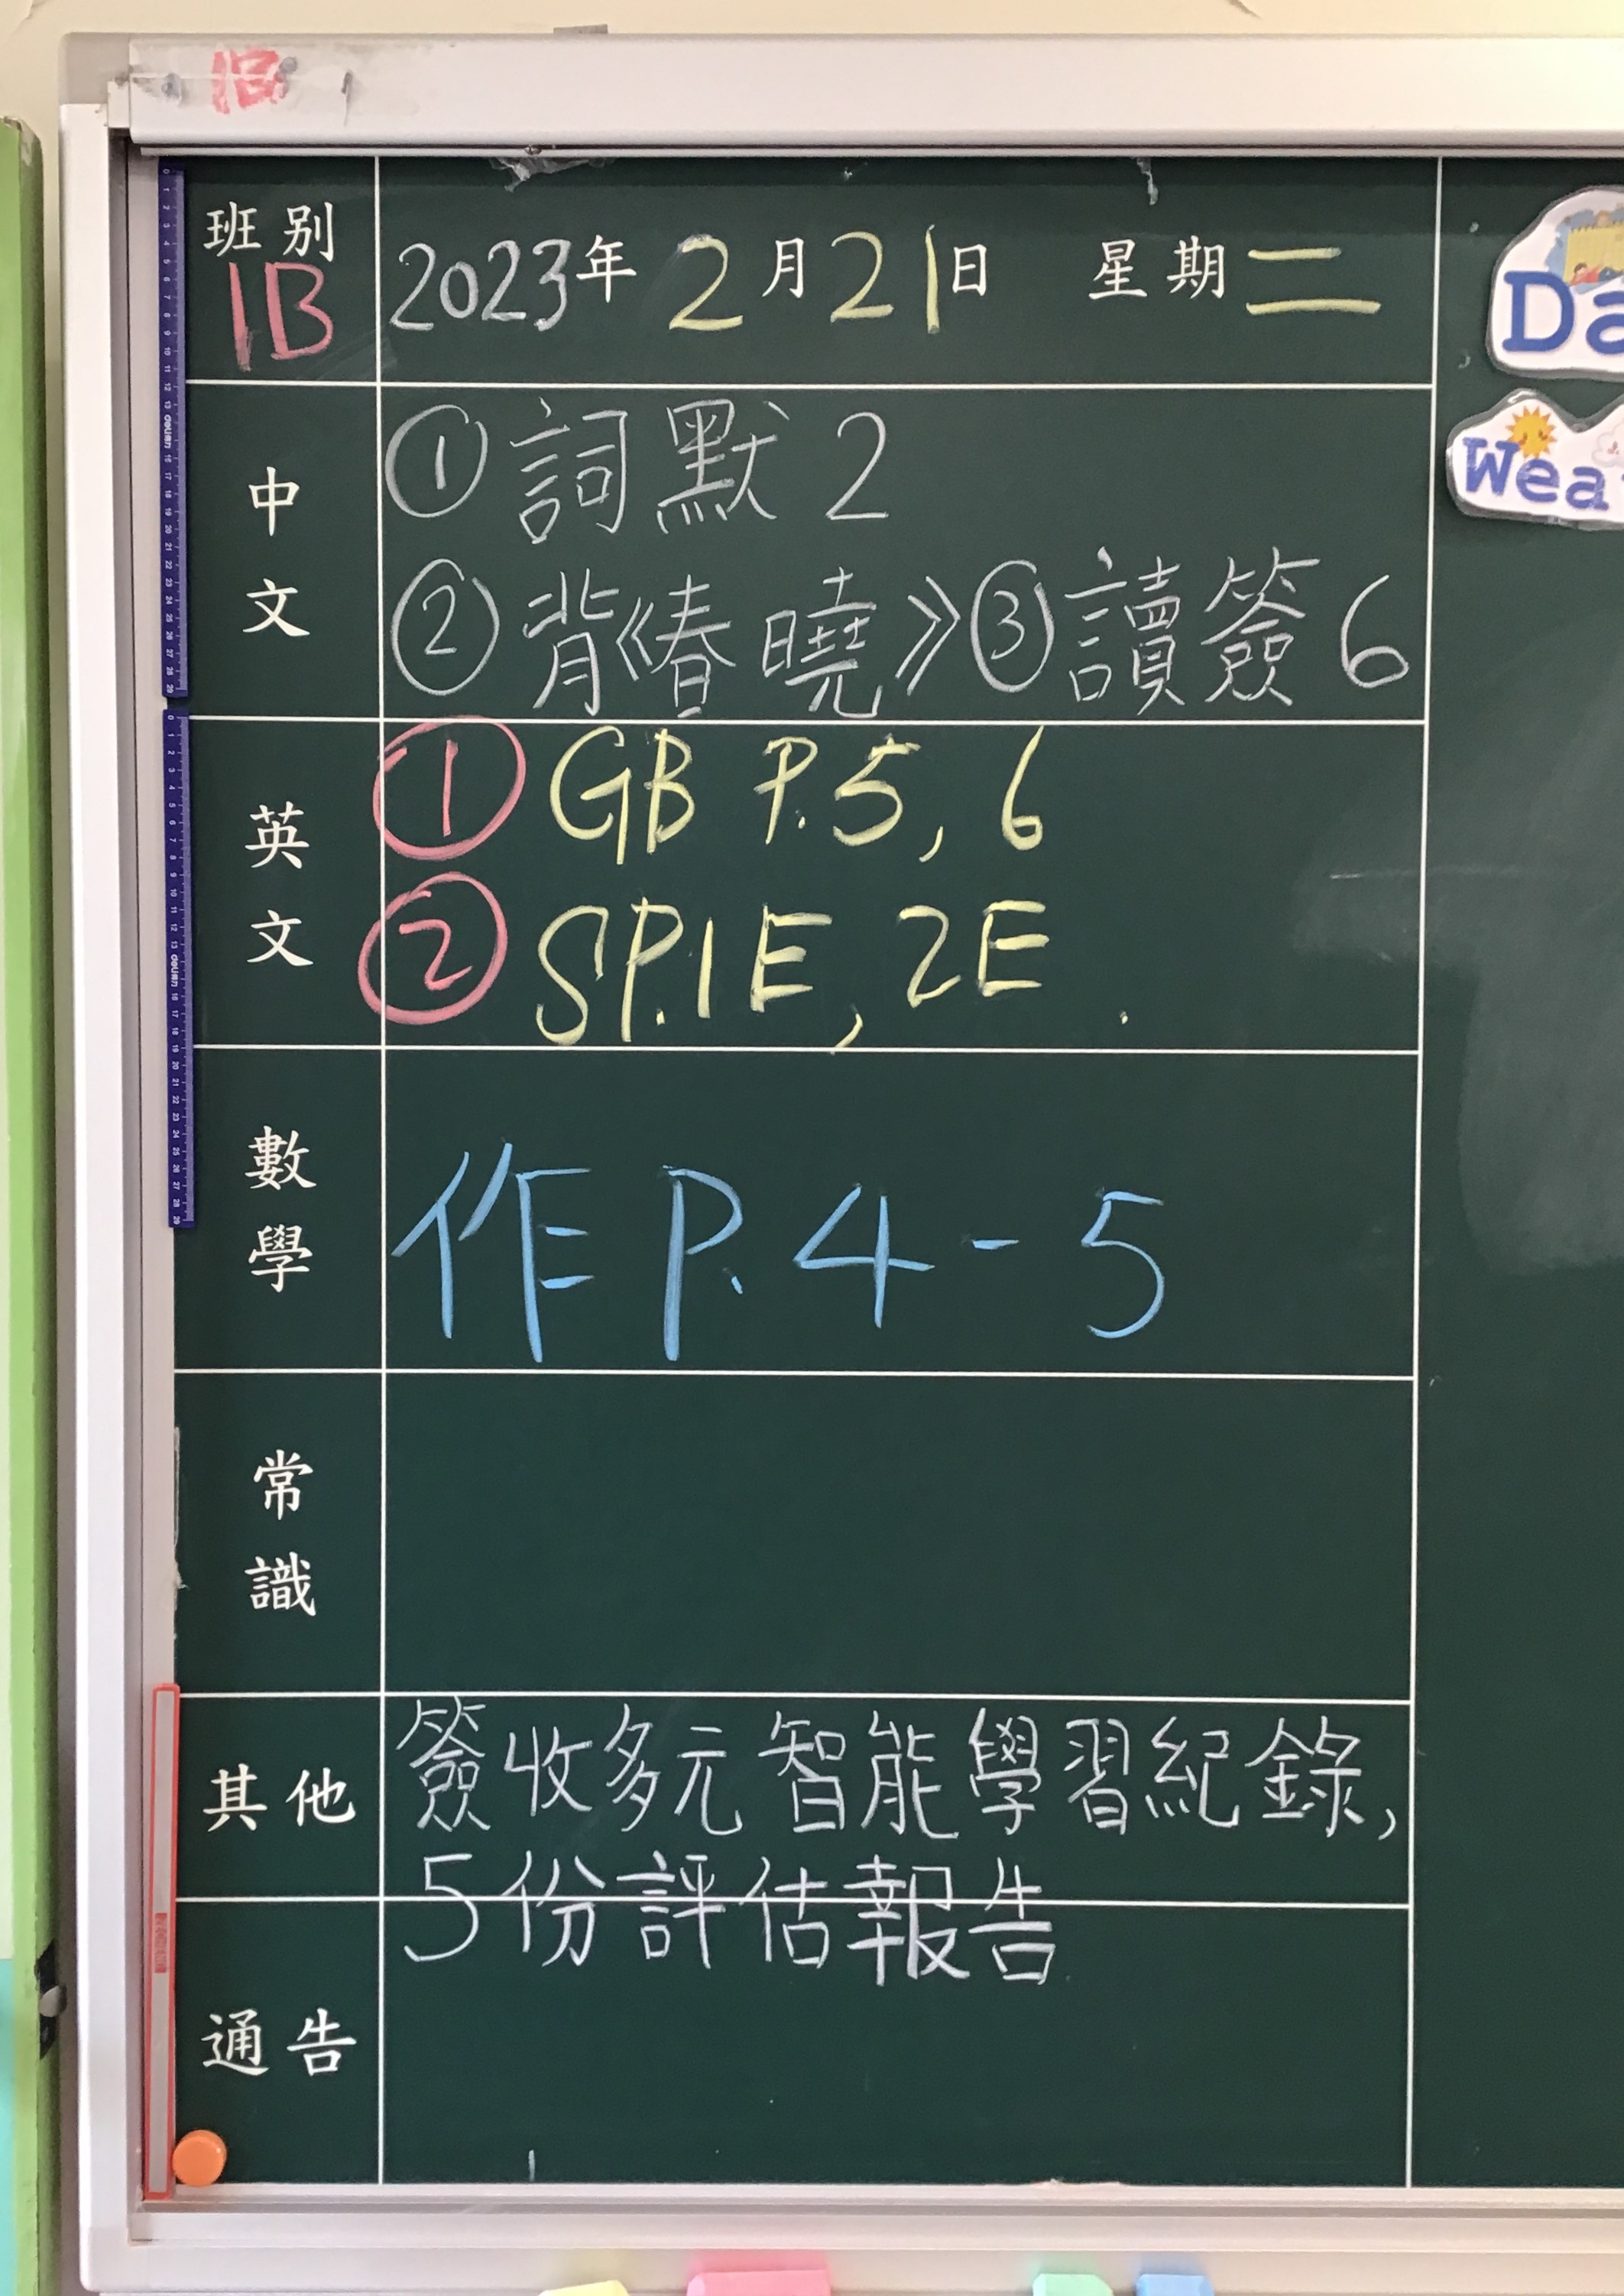 1B
班别
1B
2023年 2月21日 星期二
中文
① 詞默 2
② 背《春曉》③ 讀簽 6
英文
① GB P.5, 6
② SP.1E, 2E.
數學
作 P. 4 - 5
常識
其他
簽收多元智能學習紀錄,
5份評估報告
通告
Da
Wea